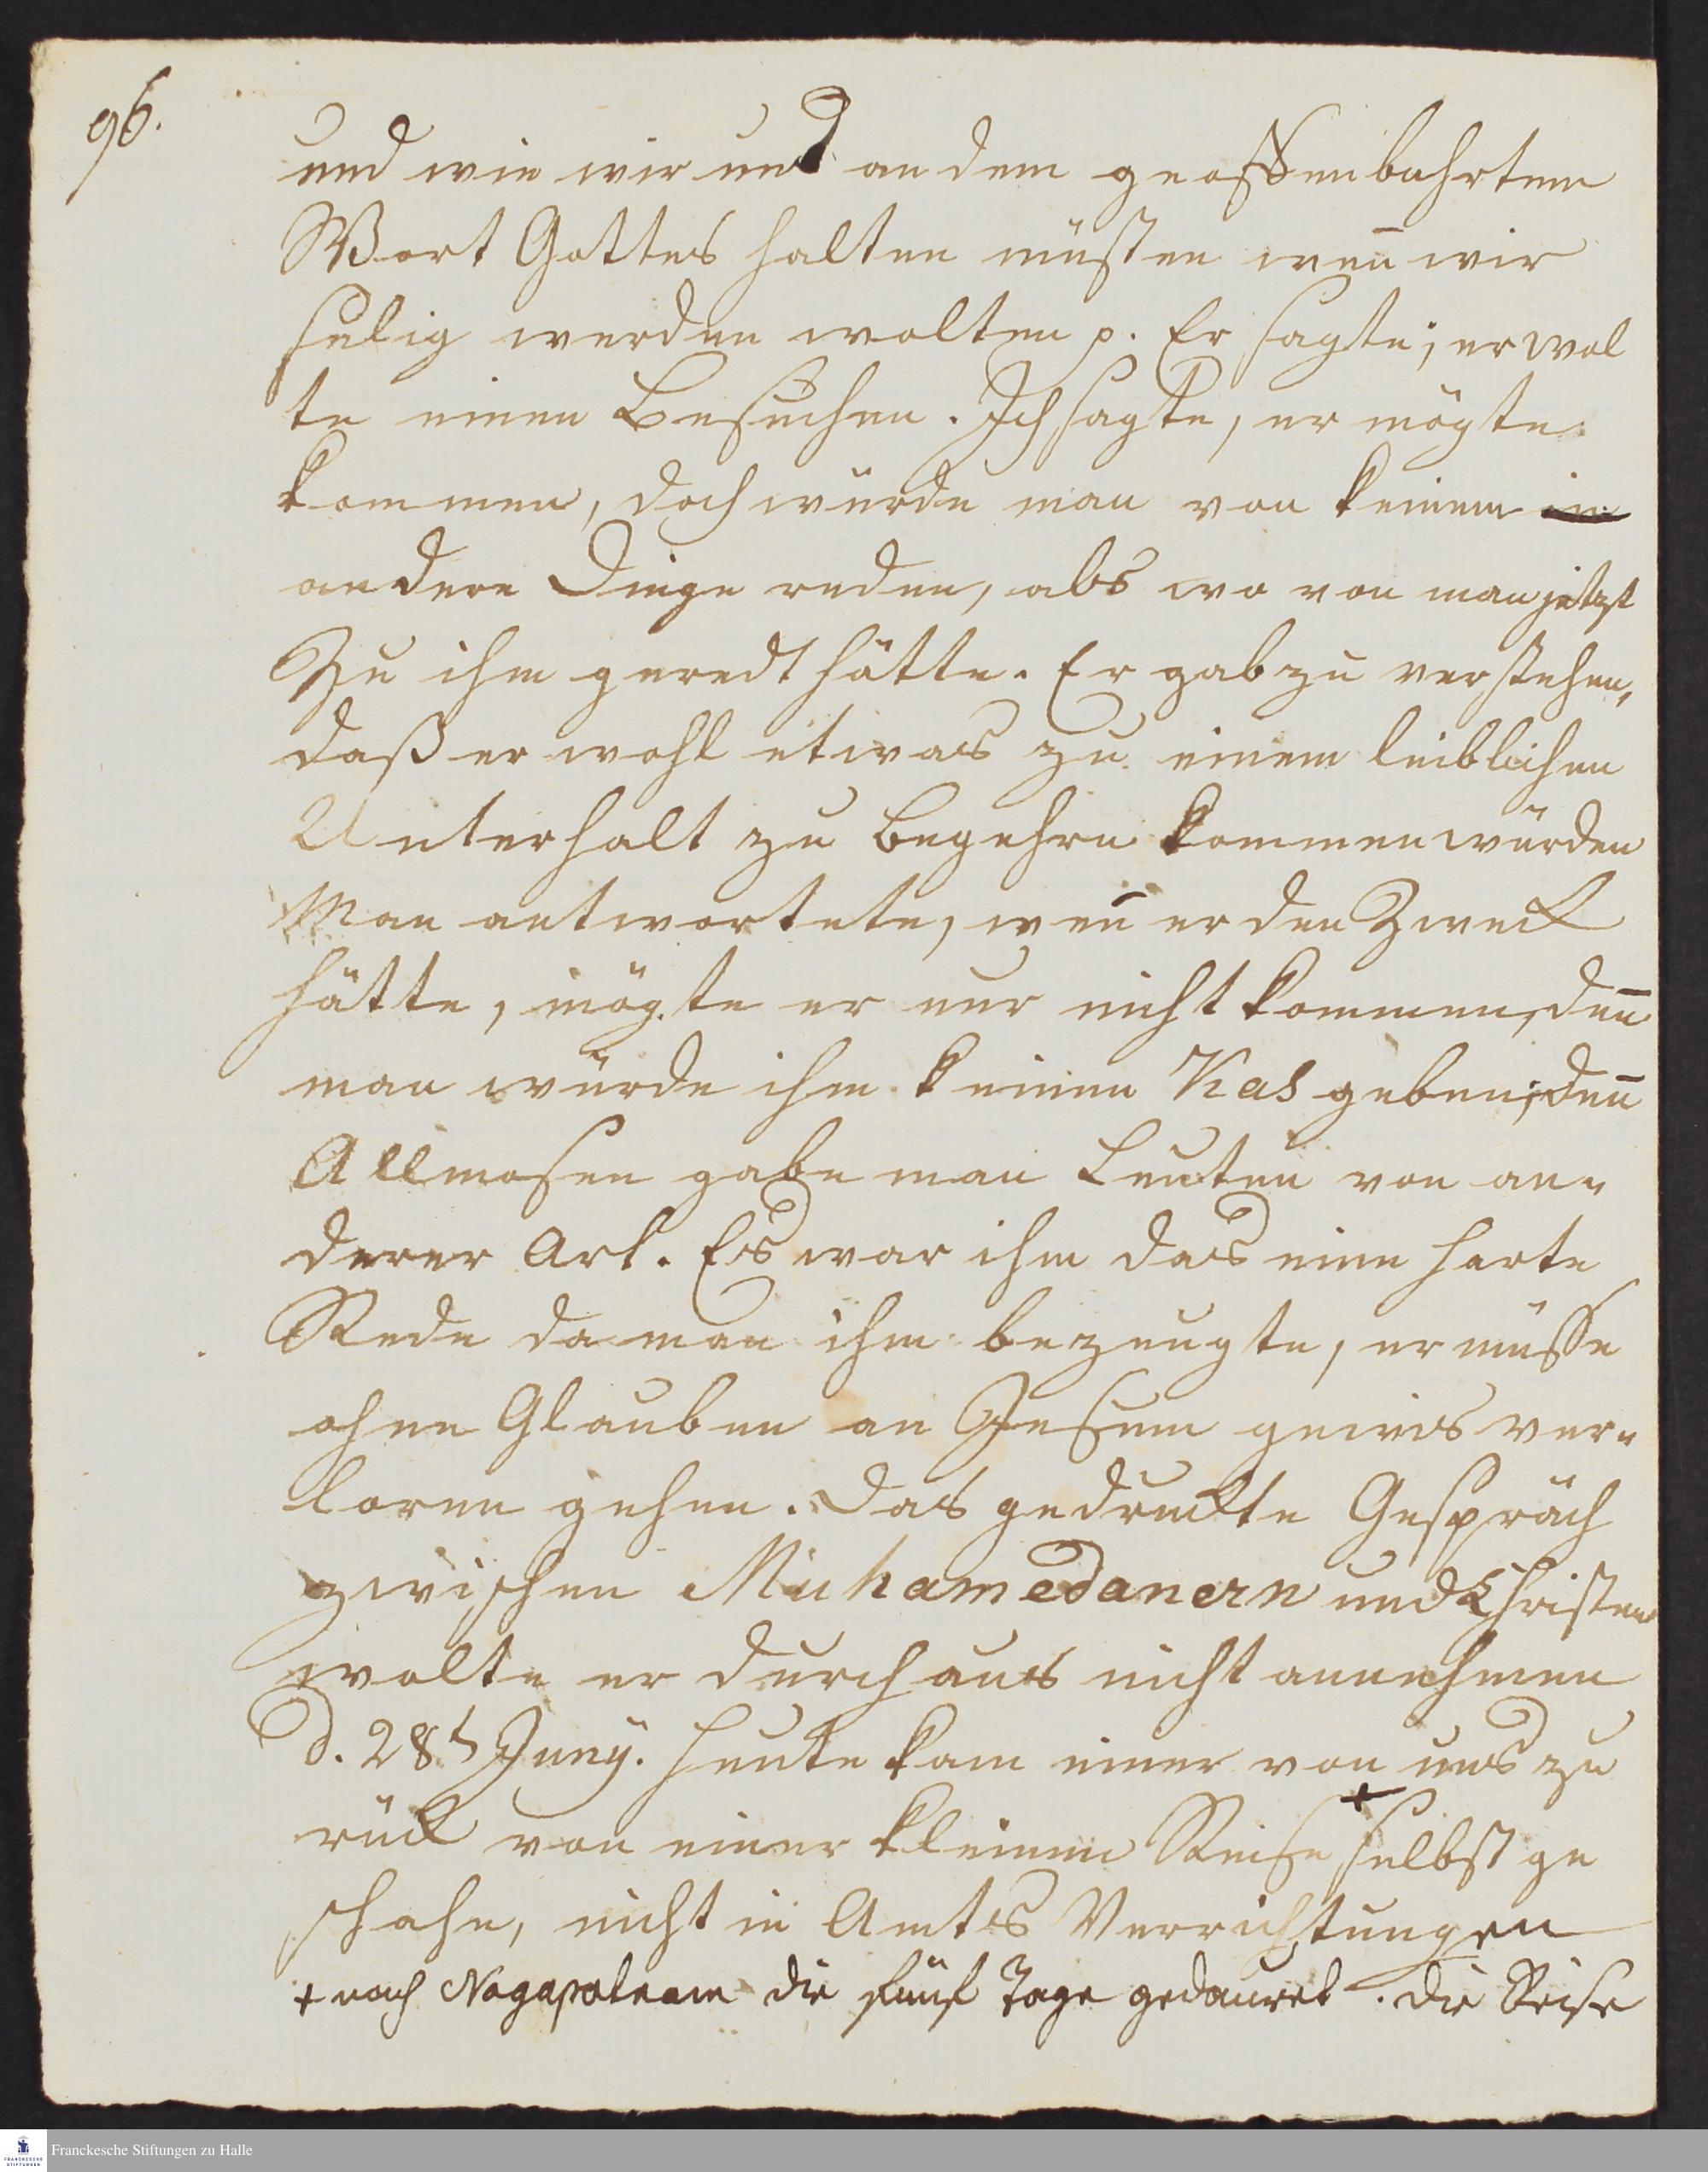 96.
und wie wir uns an dem geoffenbahrten
Wort Gottes halten müsten wen̄ wir
selig werden wolten p. Er sagte, er wol
te einen Besuchen. Ich sagte, er mögte
kommen, doch würde man von keinem
andere Dinge reden, als wo von man jetzt
Zu ihm geredt hätte. Er gab zu verstehen,
daß er wohl etwas zu einem leiblichen
Unterhalt zu begehrn kommen würden
Man antwortete, wen̄ er den Zweck
hätte, mögte er nur nicht kommen, den̄
man würde ihm keinen Kas geben, den̄
Allmosen gabe man Leuten von an-
derer Art. Es war ihm das eine harte
Rede da man ihm bezeugte, er müsse
ohne Glauben an Jesum gewis ver-
loren gehen. Das gedruckte Gespräch
zwischen Muhamedanern und Christen
wolte er durchaus nicht annehmen
d. 28t Juny. Heute kam einer von uns zu
rück von einer kleinen Reise + selbst ge
schahe, nicht in Amts Verrichtungen
+ nach Nagapatnam die fünf Tage gedauret. Die Reise
Franckesche Stiftungen zu Halle